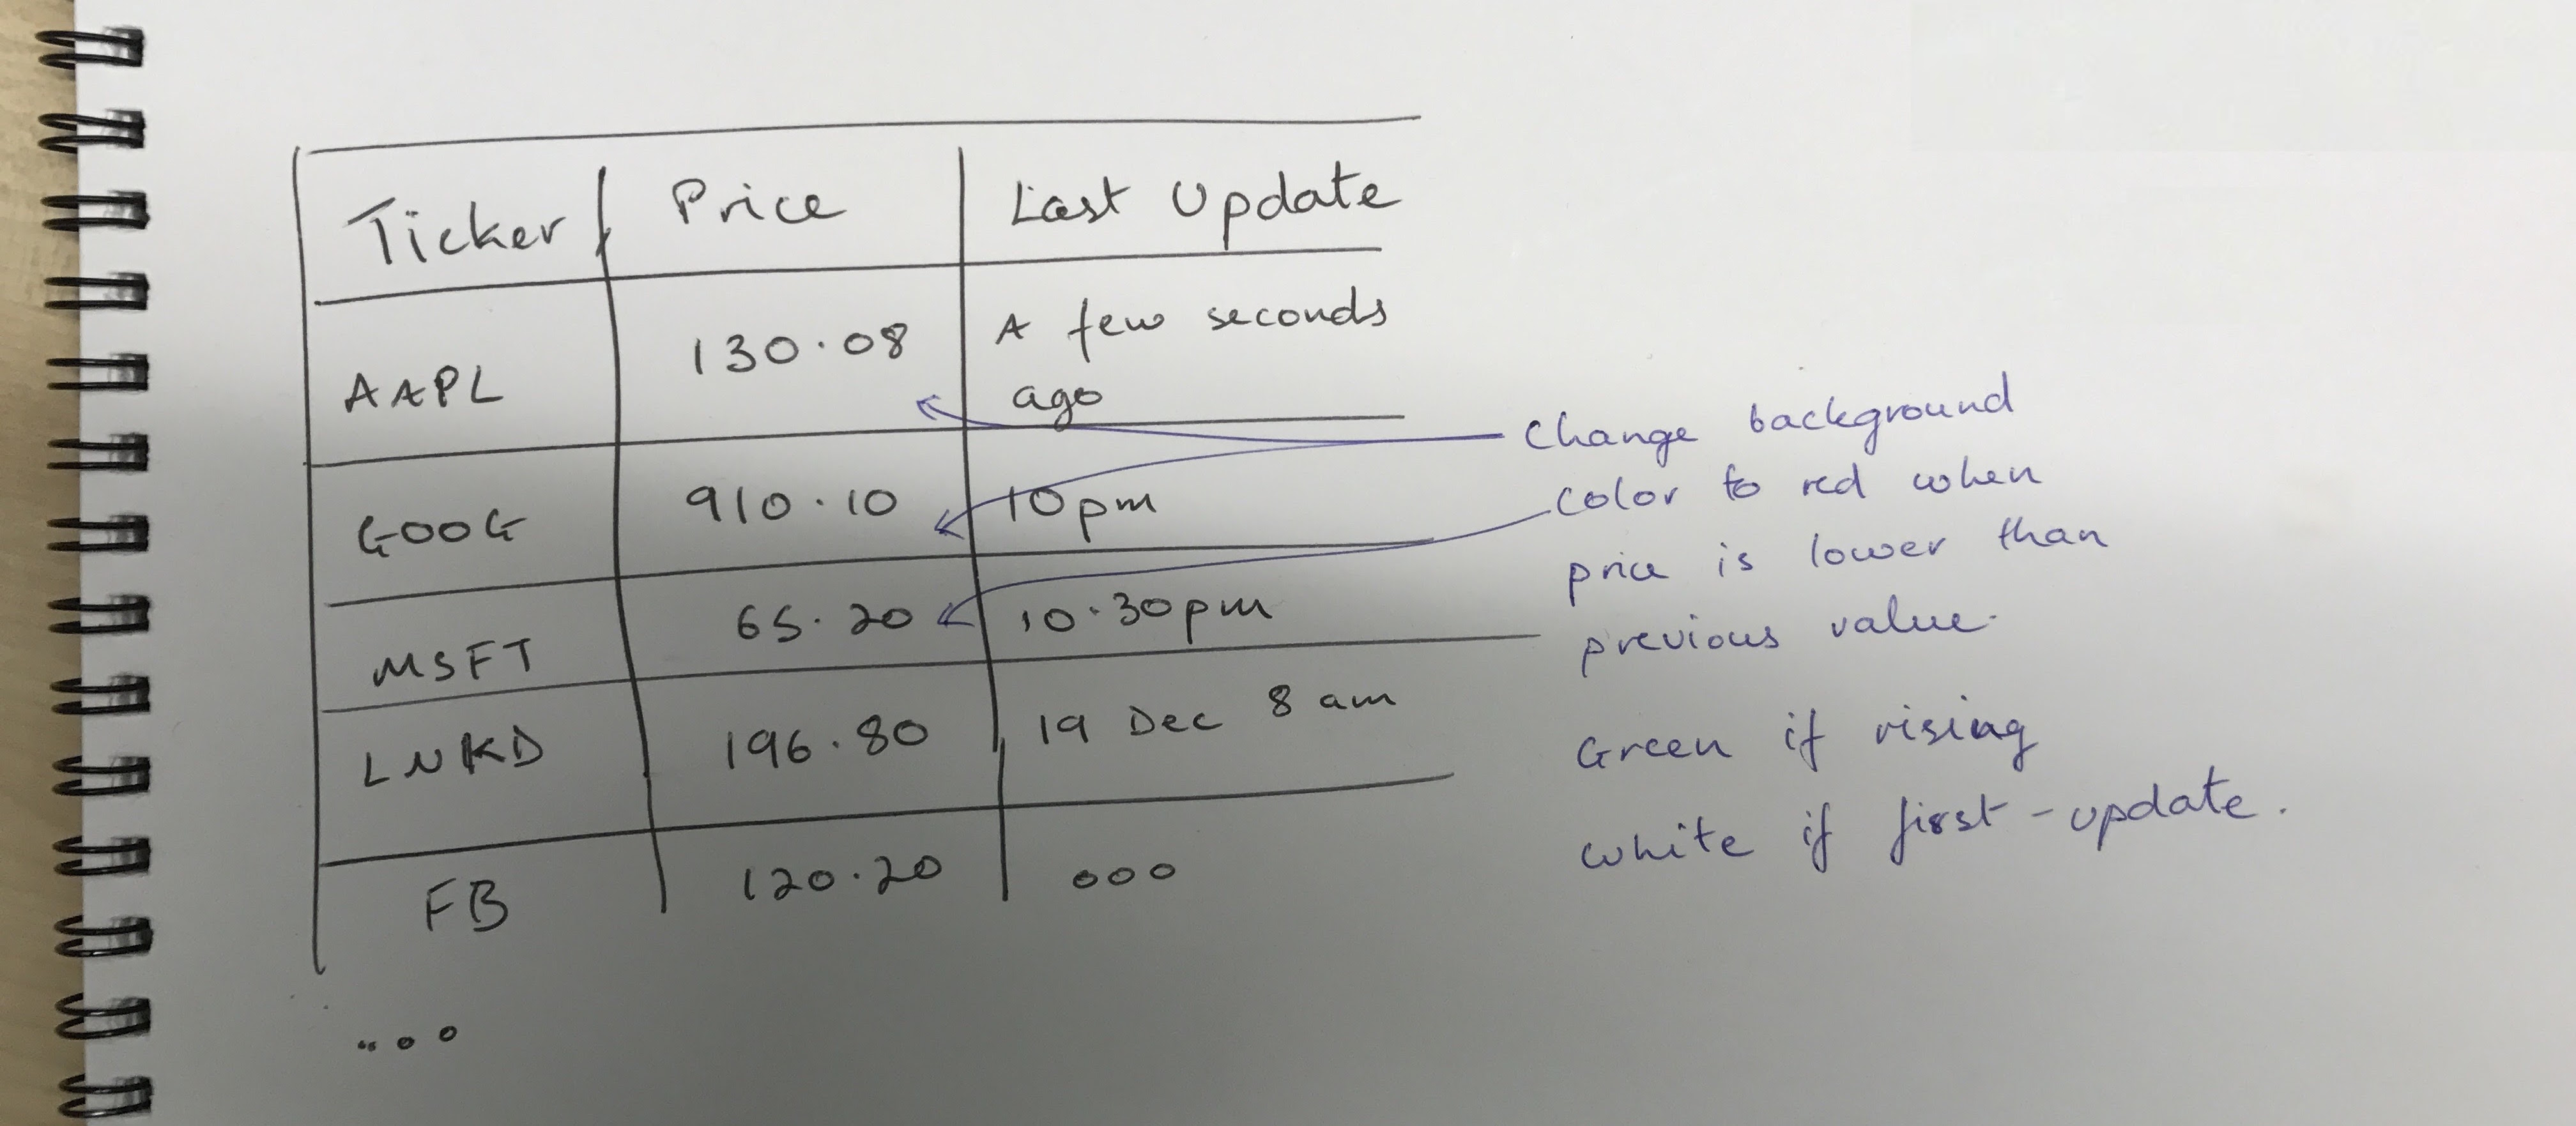 Ticker Price Last Update
AAPL 130.08 A few seconds
ago
GOOG 910.10 10pm
MSFT 65.20 10.30pm
LNKD 196.80 19 Dec 8 am
FB 120.20 ooo
...
Change background
color to red when
price is lower than
previous value.
Green if rising
white if first-update.